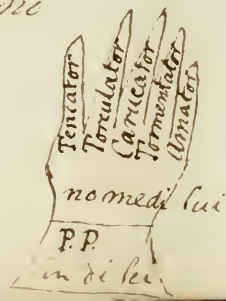 Tentator
Torculator
Carucator
Tormentator
Amator
no medi lui
P. P.
in di lei